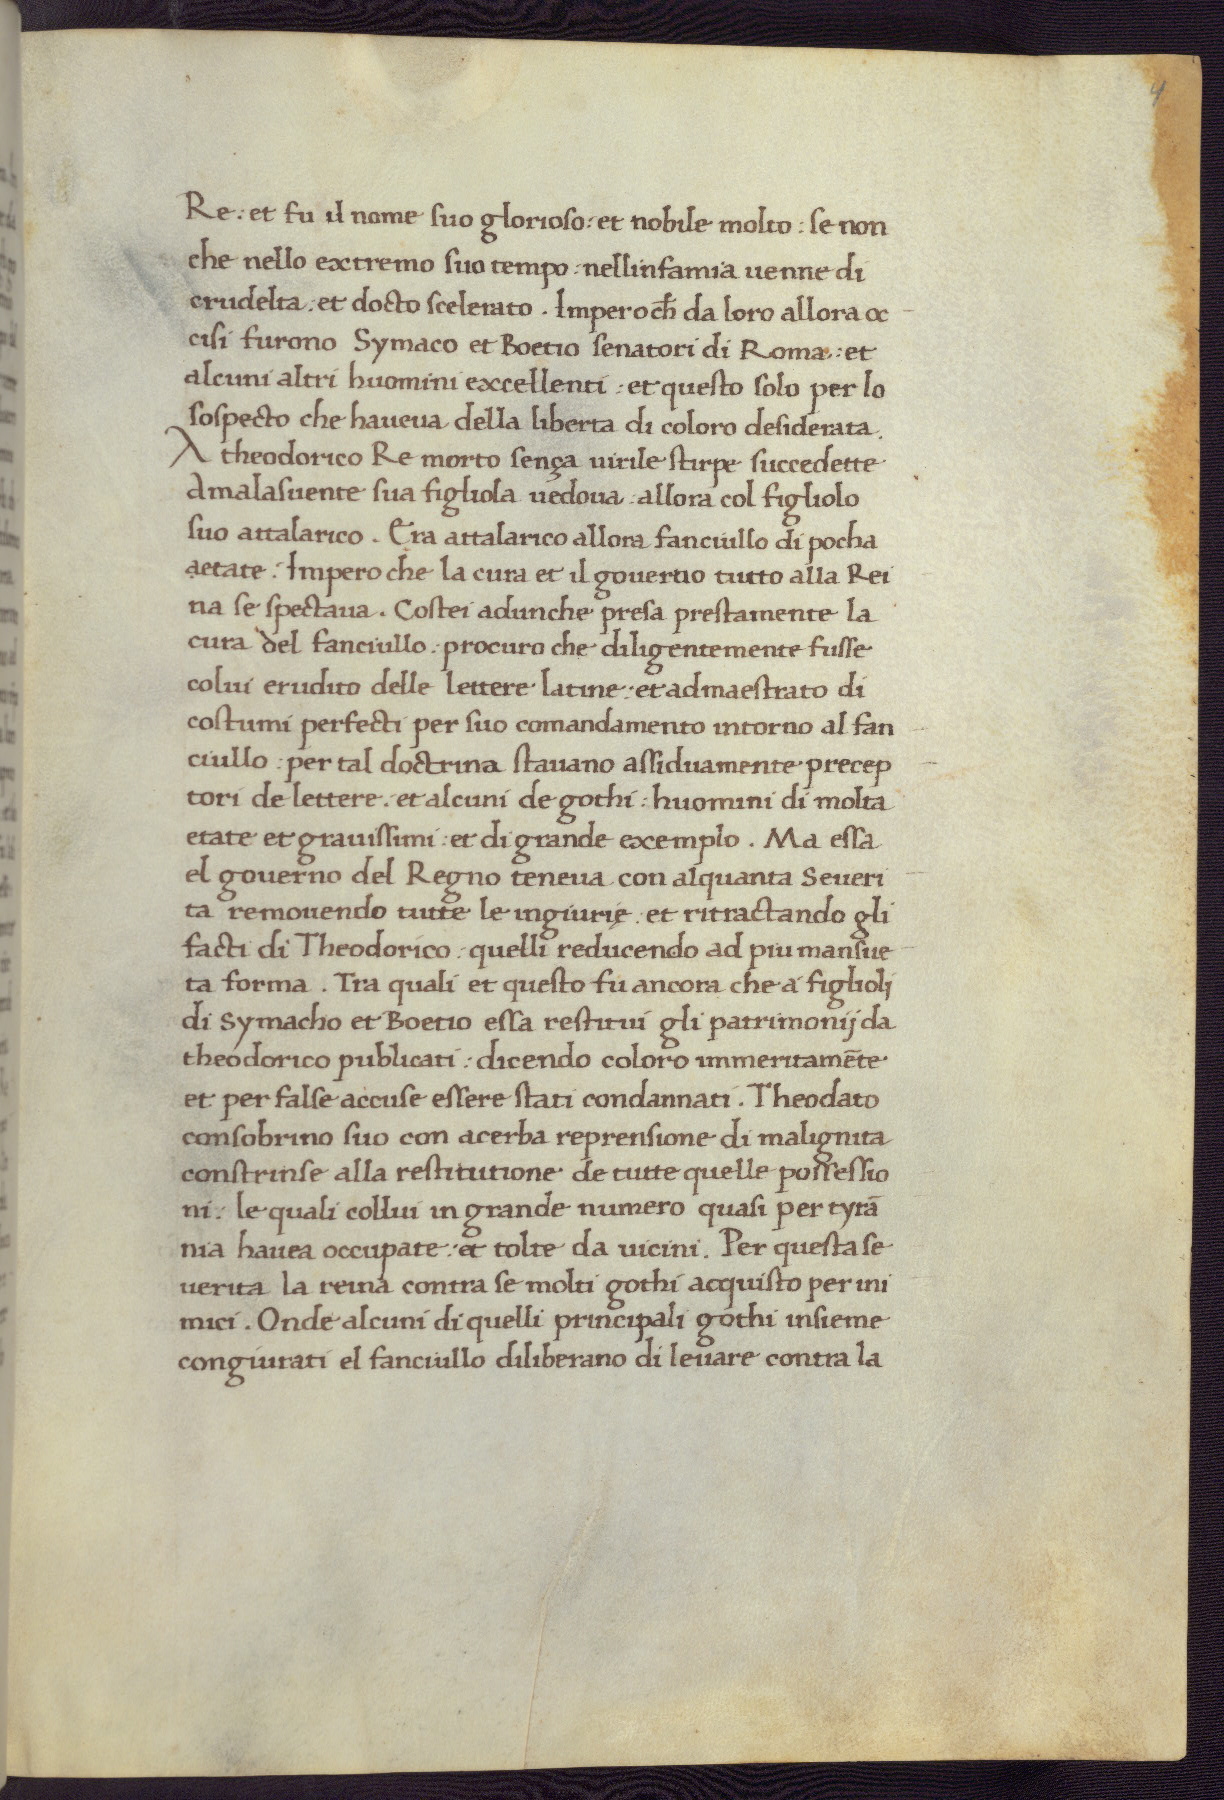 4
Re: et fu il nome suo glorioso: et nobile molto: se non
che nello extremo suo tempo: nellinfamia uenne di
crudelta: et docto scelerato. Imperoch̄ da loro allora oc
cisi furono Symaco et Boetio senatori di Roma: et
alcuni altri huomini excellenti: et questo solo per lo
sospecto che haueua della liberta di coloro desiderata.
A theodorico Re morto sença uirile stirpe succedette
Amalasuente sua figliola uedoua: allora col figliolo
suo attalarico. Era attalarico allora fanciullo di pocha
aetate: Impero che la cura et il gouerno tutto alla Rei
na se spectaua. Costei adunche presa prestamente la
cura del fanciullo: procuro che diligentemente fusse
colui erudito delle lettere latine: et admaestrato di
costumi perfecti per suo comandamento intorno al fan
ciullo: per tal doctrina stauano assiduamente precep
tori de lettere: et alcuni de gothi: huomini di molta
etate et grauissimi: et di grande excemplo. Ma essa
el gouerno del Regno teneua con alquanta Seueri
ta remouendo tutte le ingiurie. et ritractando gli
facti di Theodorico: quelli reducendo ad piu mansue
ta forma. Tra quali et questo fu ancora che a figlioli
di Symacho et Boetio essa restitui gli patrimonij da
theodorico publicati: dicendo coloro immeritamēte
et per false accuse essere stati condannati. Theodato
consobrino suo con acerba reprensione di malignita
constrinse alla restitutione de tutte quelle possessio
ni: le quali collui in grande numero quasi per tyrā
nia hauea occupate: et tolte da uicini. Per questa se
uerita la reina contra se molti gothi acquisto per ini
mici. Onde alcuni di quelli principali gothi insieme
congiurati el fanciullo diliberano di leuare contra la